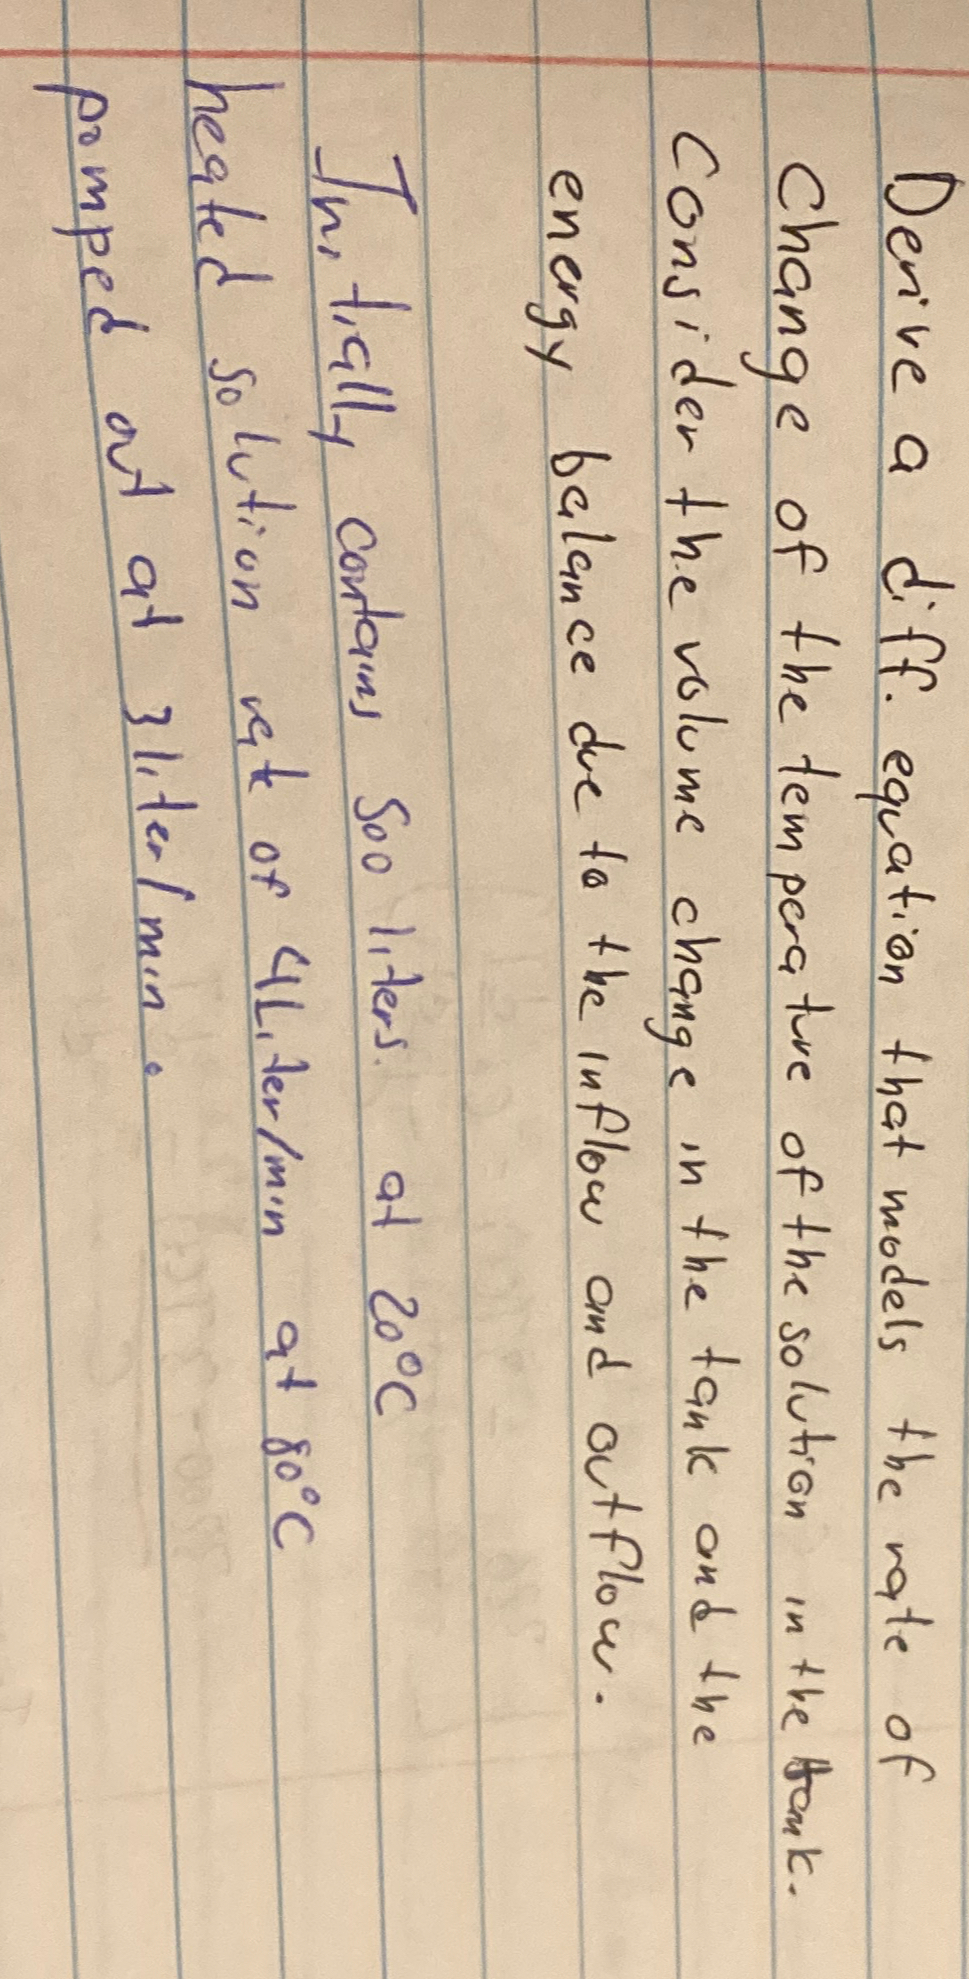 Derive a diff. equation that models the rate of
Change of the temperature of the solution in the tank.
Consider the volume change in the tank and the
energy balance due to the inflow and outflow.
Initially contains 500 liters. at 20°C
heated solution rate of 4Liter/min at 80°C
pomped out at 3liter/min.